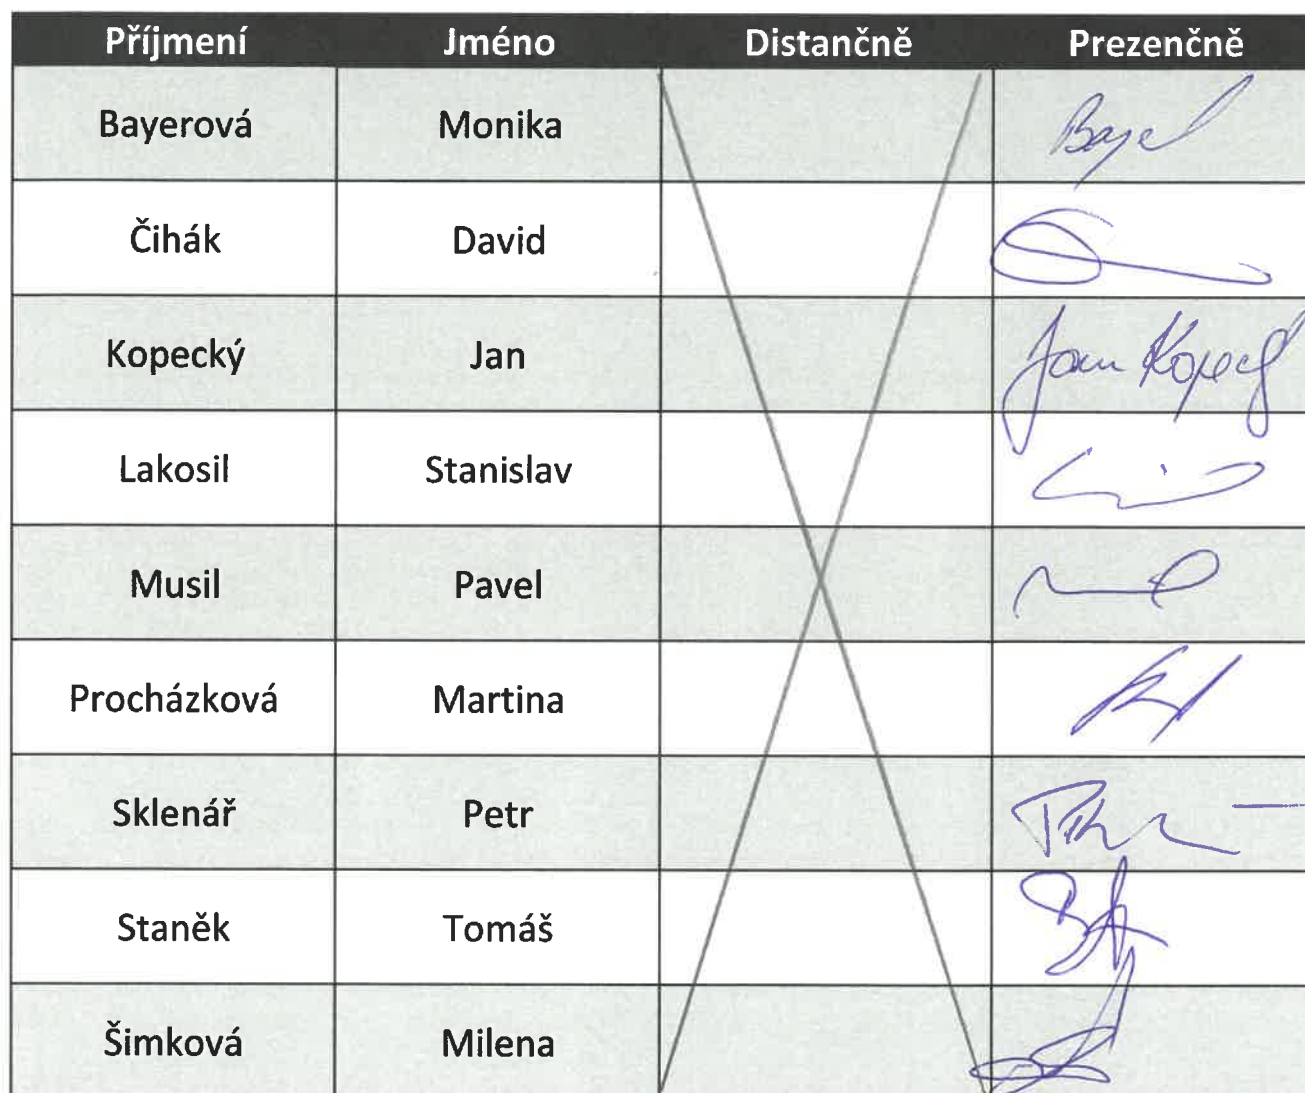 Příjmení Jméno Distančně Prezenčně
Bayerová Monika
Čihák David
Kopecký Jan Jan Kopecký
Lakosil Stanislav
Musil Pavel
Procházková Martina
Sklenář Petr
Staněk Tomáš
Šimková Milena